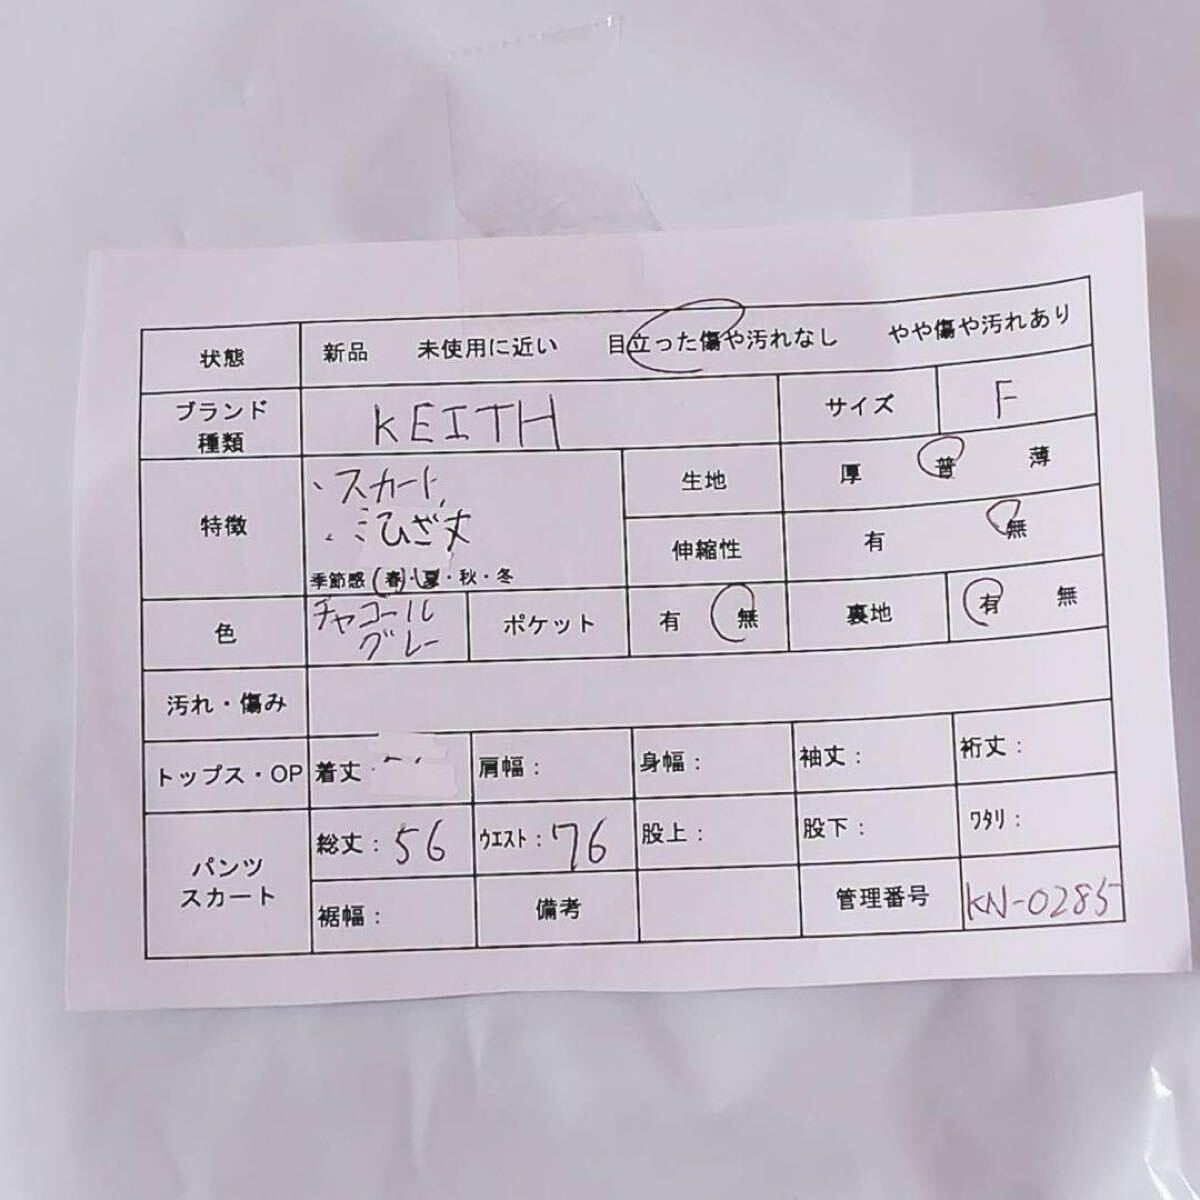 状態 新品 未使用に近い 目立った傷や汚れなし やや傷や汚れあり
ブランド
種類 KEITH サイズ F
特徴
・スカート
・ミひざ丈
季節感 (春)・夏・秋・冬
生地 厚 普 薄
伸縮性 有 無
色 チャコール
グレー ポケット 有 無 裏地 有 無
汚れ・傷み
トップス・OP 着丈 肩幅: 身幅: 袖丈: 裄丈:
パンツ
スカート
総丈: 56 ウエスト: 76 股上: 股下: ワタリ:
裾幅: 備考 管理番号 KN-0285